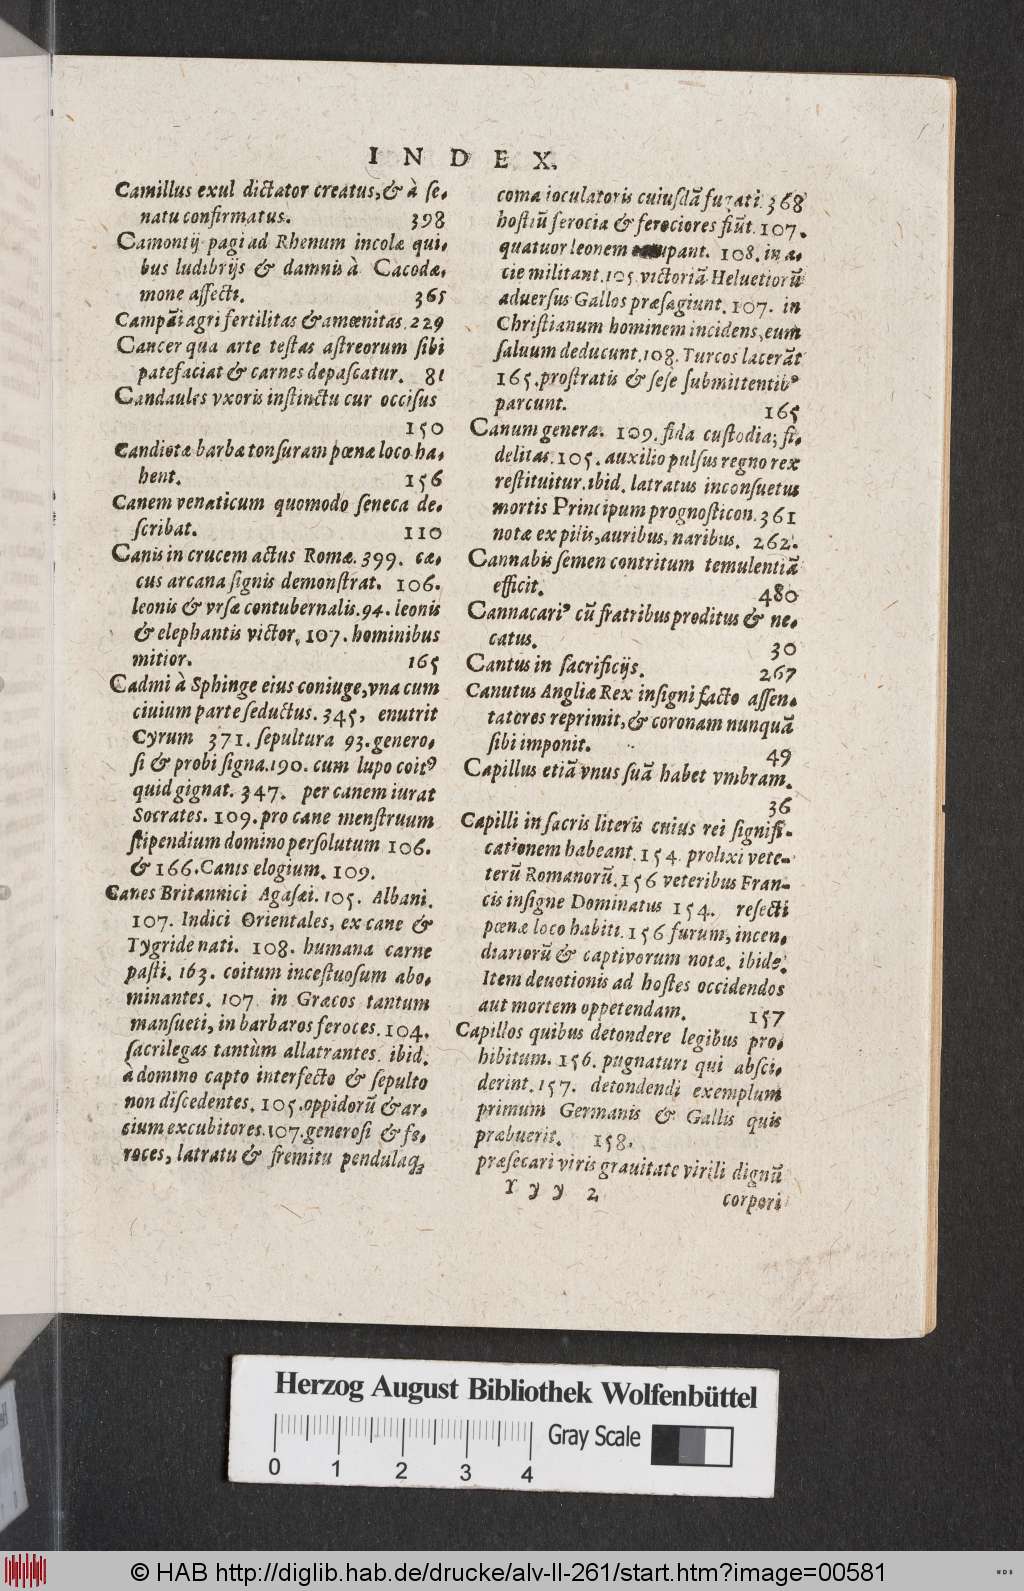 INDEX.
Camillus exul dictator creatus, & à se-
natu confirmatus. 398
Camontij pagi ad Rhenum incolæ qui-
bus ludibrijs & damnis à Cacodæ-
mone affecti. 365
Campãi agri fertilitas & amœnitas. 229
Cancer qua arte testas astreorum sibi
patefaciat & carnes depascatur. 81
Candaules vxoris instinctu cur occisus
150
Candiotæ barbæ tonsuram pœnæ loco ha-
bent. 156
Canem venaticum quomodo seneca de-
scribat. 110
Canis in crucem actus Romæ. 399. cæ-
cus arcana signis demonstrat. 106.
leonis & vrsæ contubernalis. 94. leonis
& elephantis victor. 107. hominibus
mitior. 165
Cadmi à Sphinge eius coniuge, vna cum
ciuium parte seductus. 345, enutrit
Cyrum 371. sepultura 93. genero-
si & probi signa. 190. cum lupo coitꝰ
quid gignat. 347. per canem iurat
Socrates. 109. pro cane menstruum
stipendium domino persolutum 106.
& 166. Canis elogium. 109.
Canes Britannici Agasæi. 105. Albani.
107. Indici Orientales, ex cane &
Tygride nati. 108. humana carne
pasti. 163. coitum incestuosum abo-
minantes. 107 in Græcos tantum
mansueti, in barbaros feroces. 104.
sacrilegas tantùm allatrantes. ibid.
à domino capto interfecto & sepulto
non discedentes. 105. oppidorũ & ar-
cium excubitores. 107. generosi & fe-
roces, latratu & fremitu pendulaq;
coma ioculatoris cuiusdã fugati. 368
hostiũ ferocia & ferociores fiũt. 107.
quatuor leonem occupant. 108. in a-
cie militant. 105 victoriã Heluetiorũ
aduersus Gallos præsagiunt. 107. in
Christianum hominem incidens, eum
saluum deducunt. 108. Turcos lacerãt
165. prostratis & sese submittentibꝰ
parcunt. 165
Canum genera. 109. fida custodia; fi-
delitas. 105. auxilio pulsus regno rex
restituitur. ibid. latratus inconsuetus
mortis Principum prognosticon. 361
notæ ex pilis, auribus, naribus. 262.
Cannabis semen contritum temulentiã
efficit. 480
Cannacariꝰ cũ fratribus proditus & ne-
catus. 30
Cantus in sacrificijs. 267
Canutus Angliæ Rex insigni facto assen-
tatores reprimit, & coronam nunquã
sibi imponit. 49
Capillus etiã vnus suã habet vmbram.
36
Capilli in sacris literis cuius rei signifi-
cationem habeant. 154. prolixi vete-
terũ Romanorũ. 156 veteribus Fran-
cis insigne Dominatus 154. resecti
pœnæ loco habiti. 156 furum, incen-
diariorũ & captivorum notæ. ibide.
Item deuotionis ad hostes occidendos
aut mortem oppetendam. 157
Capillos quibus detondere legibus pro-
hibitum. 156. pugnaturi qui absci-
derint. 157. detondendi exemplum
primum Germanis & Gallis quis
præbuerit. 158.
præsecari viris grauitate virili dignũ
Y y y 2 corpori
Herzog August Bibliothek Wolfenbüttel
0 1 2 3 4
Gray Scale
© HAB http://diglib.hab.de/drucke/alv-ll-261/start.htm?image=00581